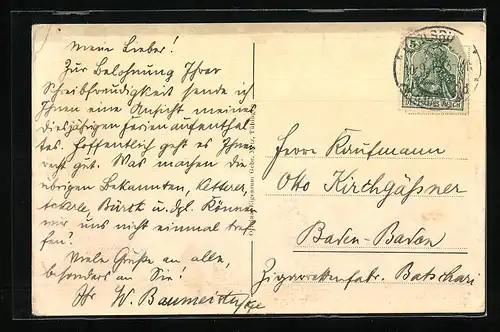 Mein Lieber!
Zur Belohnung Ihrer
Schreibfreudigkeit sende ich
Ihnen eine Ansicht meines
diesjährigen Ferienaufenthal-
tes. Hoffentlich geht es Ihnen
recht gut. Was machen die
übrigen Bekannten,
u. dgl. Können
wir uns nicht einmal tref-
fen?
Viele Grüße an alle,
besonders an Sie!
Ihr W. Baumeister
Herrn Kaufmann
Otto Kirchgäßner
Baden-Baden
Zigarettenfabr. Batschari
DEUTSCHES REICH